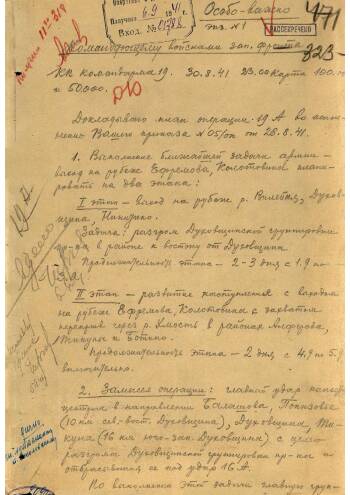 Получено
6.9 41
Вход. №01788
Особо-важно
экз. №1
РАССЕКРЕЧЕНО
471
323
Командующему войсками зап. фронта
КП командарма 19. 30.8.41 23.00 карта 100.000
и 50.000.
Докладываю план операции 19 А во испол-
нение Вашего приказа № 05/оп от 28.8.41.
1. Выполнение ближайшей задачи армии –
выход на рубеже Ефремова, Колотовино плани-
ровать на два этапа:
I этап – выход на рубеже р. Духов-
щина,
Задача: разгром Духовщинской группировки
пр-ка в районе к востоку от Духовщина.
Продолжительность этапа – 2-3 дня с 1.9 по
3.9.
II этап – развитие наступления с выходом
на рубеже Ефремова, Колотовина с захватом
переправ через р. в районах Алферова,
и Ботино.
Продолжительность этапа – 2 дня, с 4.9 по 5.9
включительно.
2. Замысел операции: главный удар
центра в направлении Балашова, Понизовье
(10 км сев-вост. Духовщина), Духовщина,
(16 км юго-зап. Духовщина) с целью
разгрома Духовщинской группировки пр-ка и
отбрасывания её под удар 16 А.
По выполнении этой задачи главную груп-